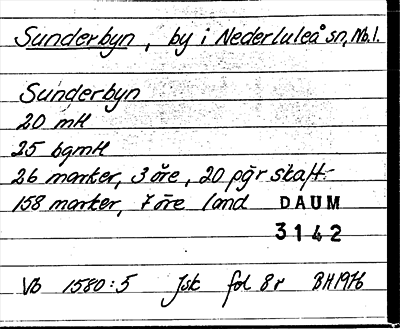 Sunderbyn, by i Nederluleå sn, Nb.l.
Sunderbyn
20 mtl
25 bgmtl
26 marker, 3 öre, 20 pgr skatt
158 marker, 7 öre land DAUM
3142
Vb 1580:5 Jsk fol 8r BH1976